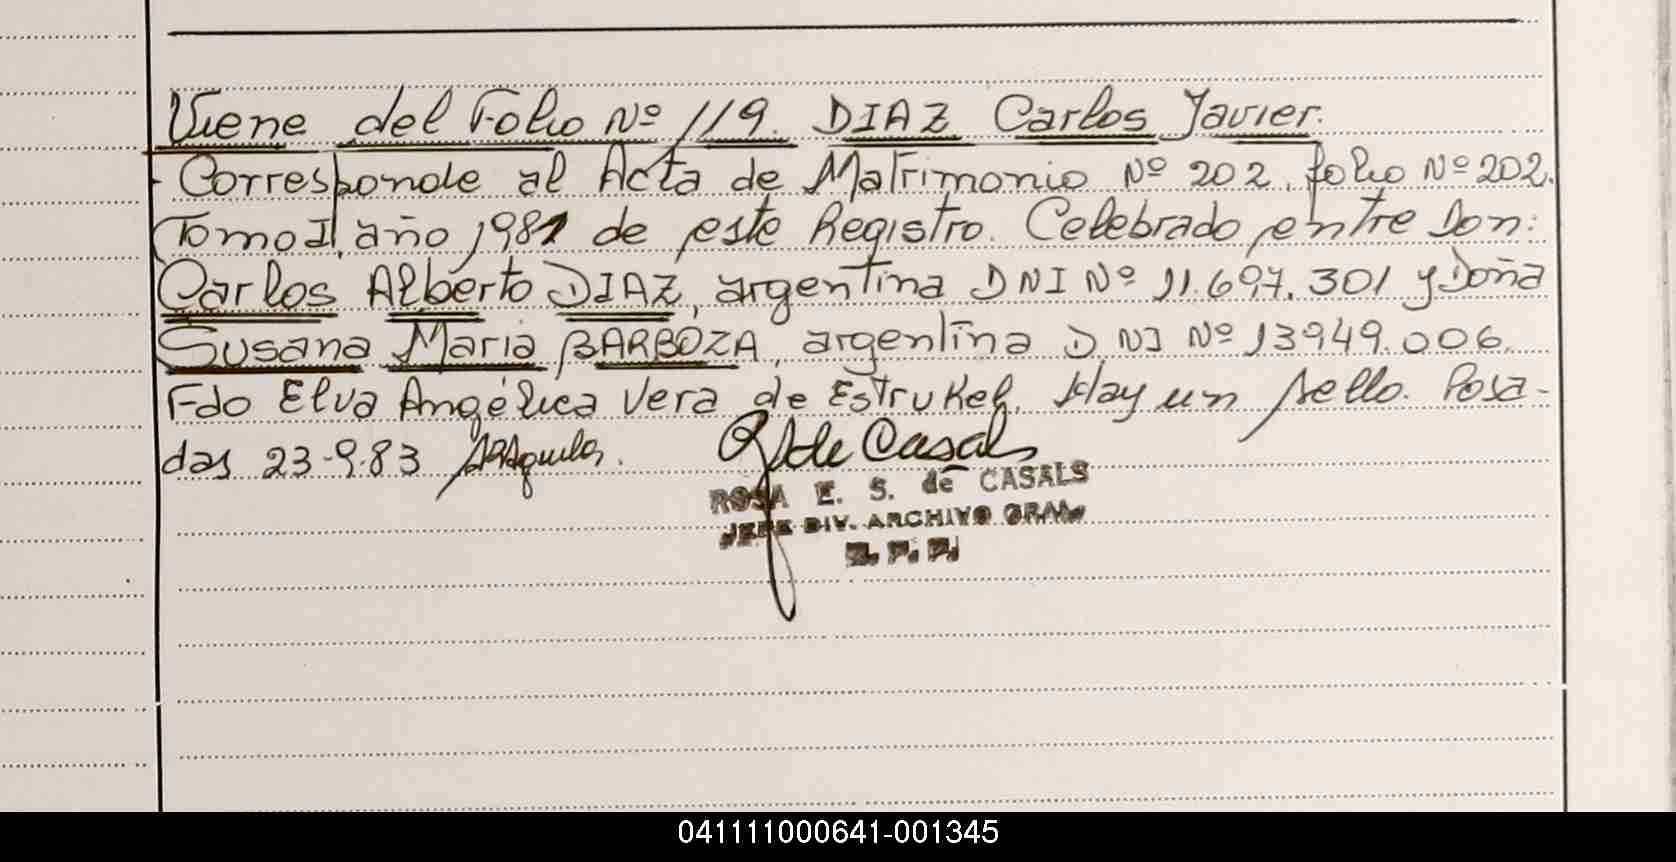 Viene del Folio Nº 119. DIAZ Carlos Javier.
- Corresponde al Acta de Matrimonio Nº 202, folio Nº 202.
Tomo I, año 1981 de este Registro. Celebrado entre Don:
Carlos Alberto DIAZ, argentina DNI Nº 11.697.301 y Doña
Susana Maria BARBOZA, argentina DNI Nº 13949.006.
Fdo Elva Angélica Vera de Estrukel. Hay un sello. Posa-
das 23-9-83
de Casals
ROSA E. S. de CASALS
JEFE DIV. ARCHIVO GRAL.
R. P. P.
041111000641-001345